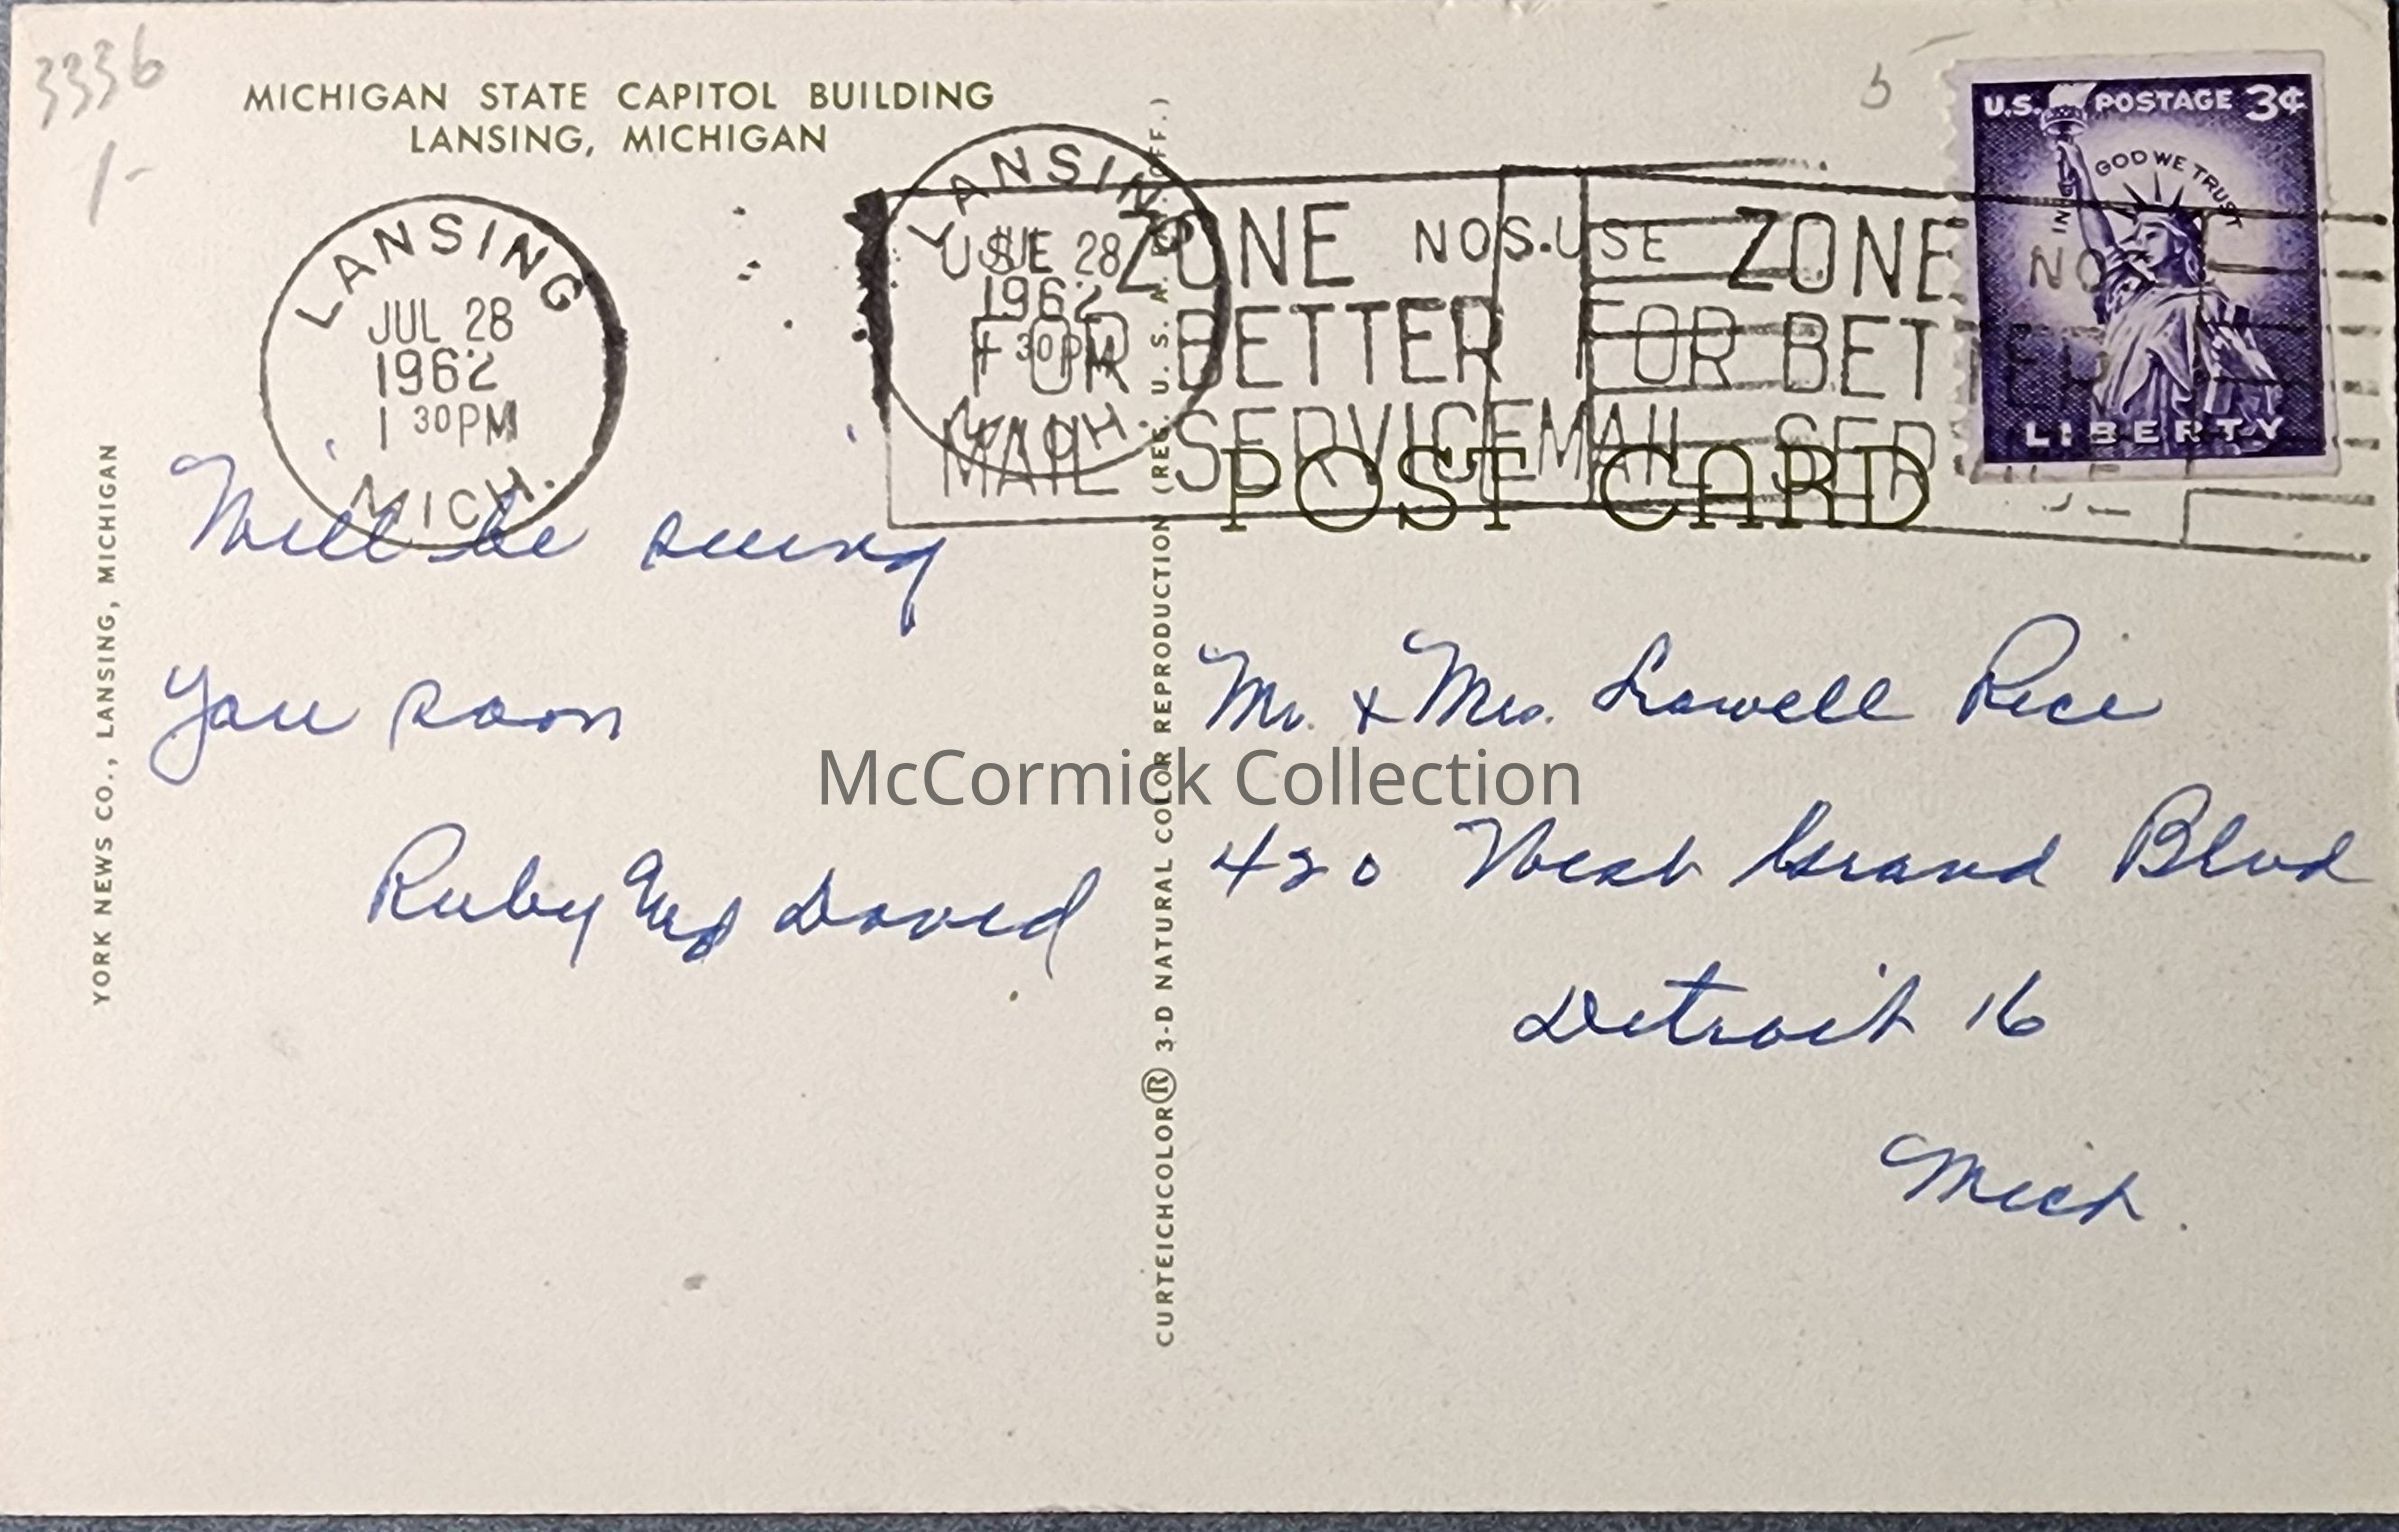 3336
1-
MICHIGAN STATE CAPITOL BUILDING
LANSING, MICHIGAN
LANSING
JUL 28
1962
1 30PM
MICH.
LANSING
JUL 28
1962
30PM
MICH.
USE ZONE NOS.
FOR BETTER
MAIL SERVICE
USE ZONE NO
FOR BETTER
MAIL SER
5
U.S. POSTAGE 3¢
IN GOD WE TRUST
LIBERTY
POST CARD
Will be seeing
you soon
Ruby and David
Mr. & Mrs. Lowell Rice
420 West Grand Blvd
Detroit 16
Mich.
YORK NEWS CO., LANSING, MICHIGAN
CURTEICHCOLOR® 3-D NATURAL COLOR REPRODUCTION (REG. U.S.A. PAT. OFF.)
McCormick Collection